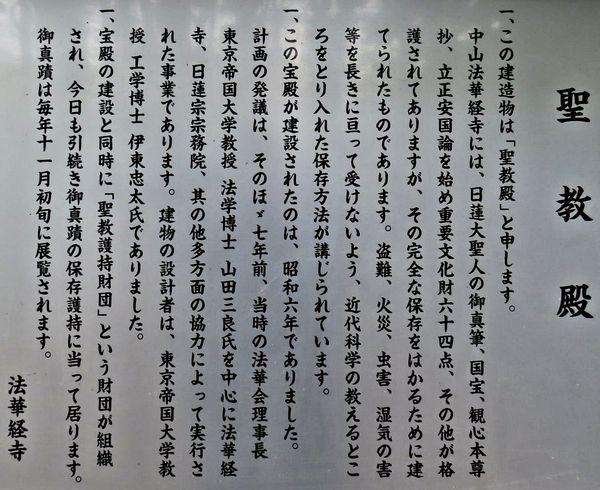 聖教殿
一、この建造物は「聖教殿」と申します。
中山法華経寺には、日蓮大聖人の御真筆、国宝、観心本尊
抄、立正安国論を始め重要文化財六十四点、その他が格
護されてありますが、その完全な保存をはかるために建
てられたものであります。盗難、火災、虫害、湿気の害
等を長きに亘って受けないよう、近代科学の教えるとこ
ろをとり入れた保存方法が講じられています。
一、この宝殿が建設されたのは、昭和六年でありました。
計画の発議は、そのほゞ七年前、当時の法華会理事長
東京帝国大学教授 法学博士 山田三良氏を中心に法華経
寺、日蓮宗宗務院、其の他多方面の協力によって実行さ
れた事業であります。建物の設計者は、東京帝国大学教
授 工学博士 伊東忠太氏でありました。
一、宝殿の建設と同時に「聖教護持財団」という財団が組織
され、今日も引続き御真蹟の保存護持に当って居ります。
御真蹟は毎年十一月初旬に展覧されます。
法華経寺